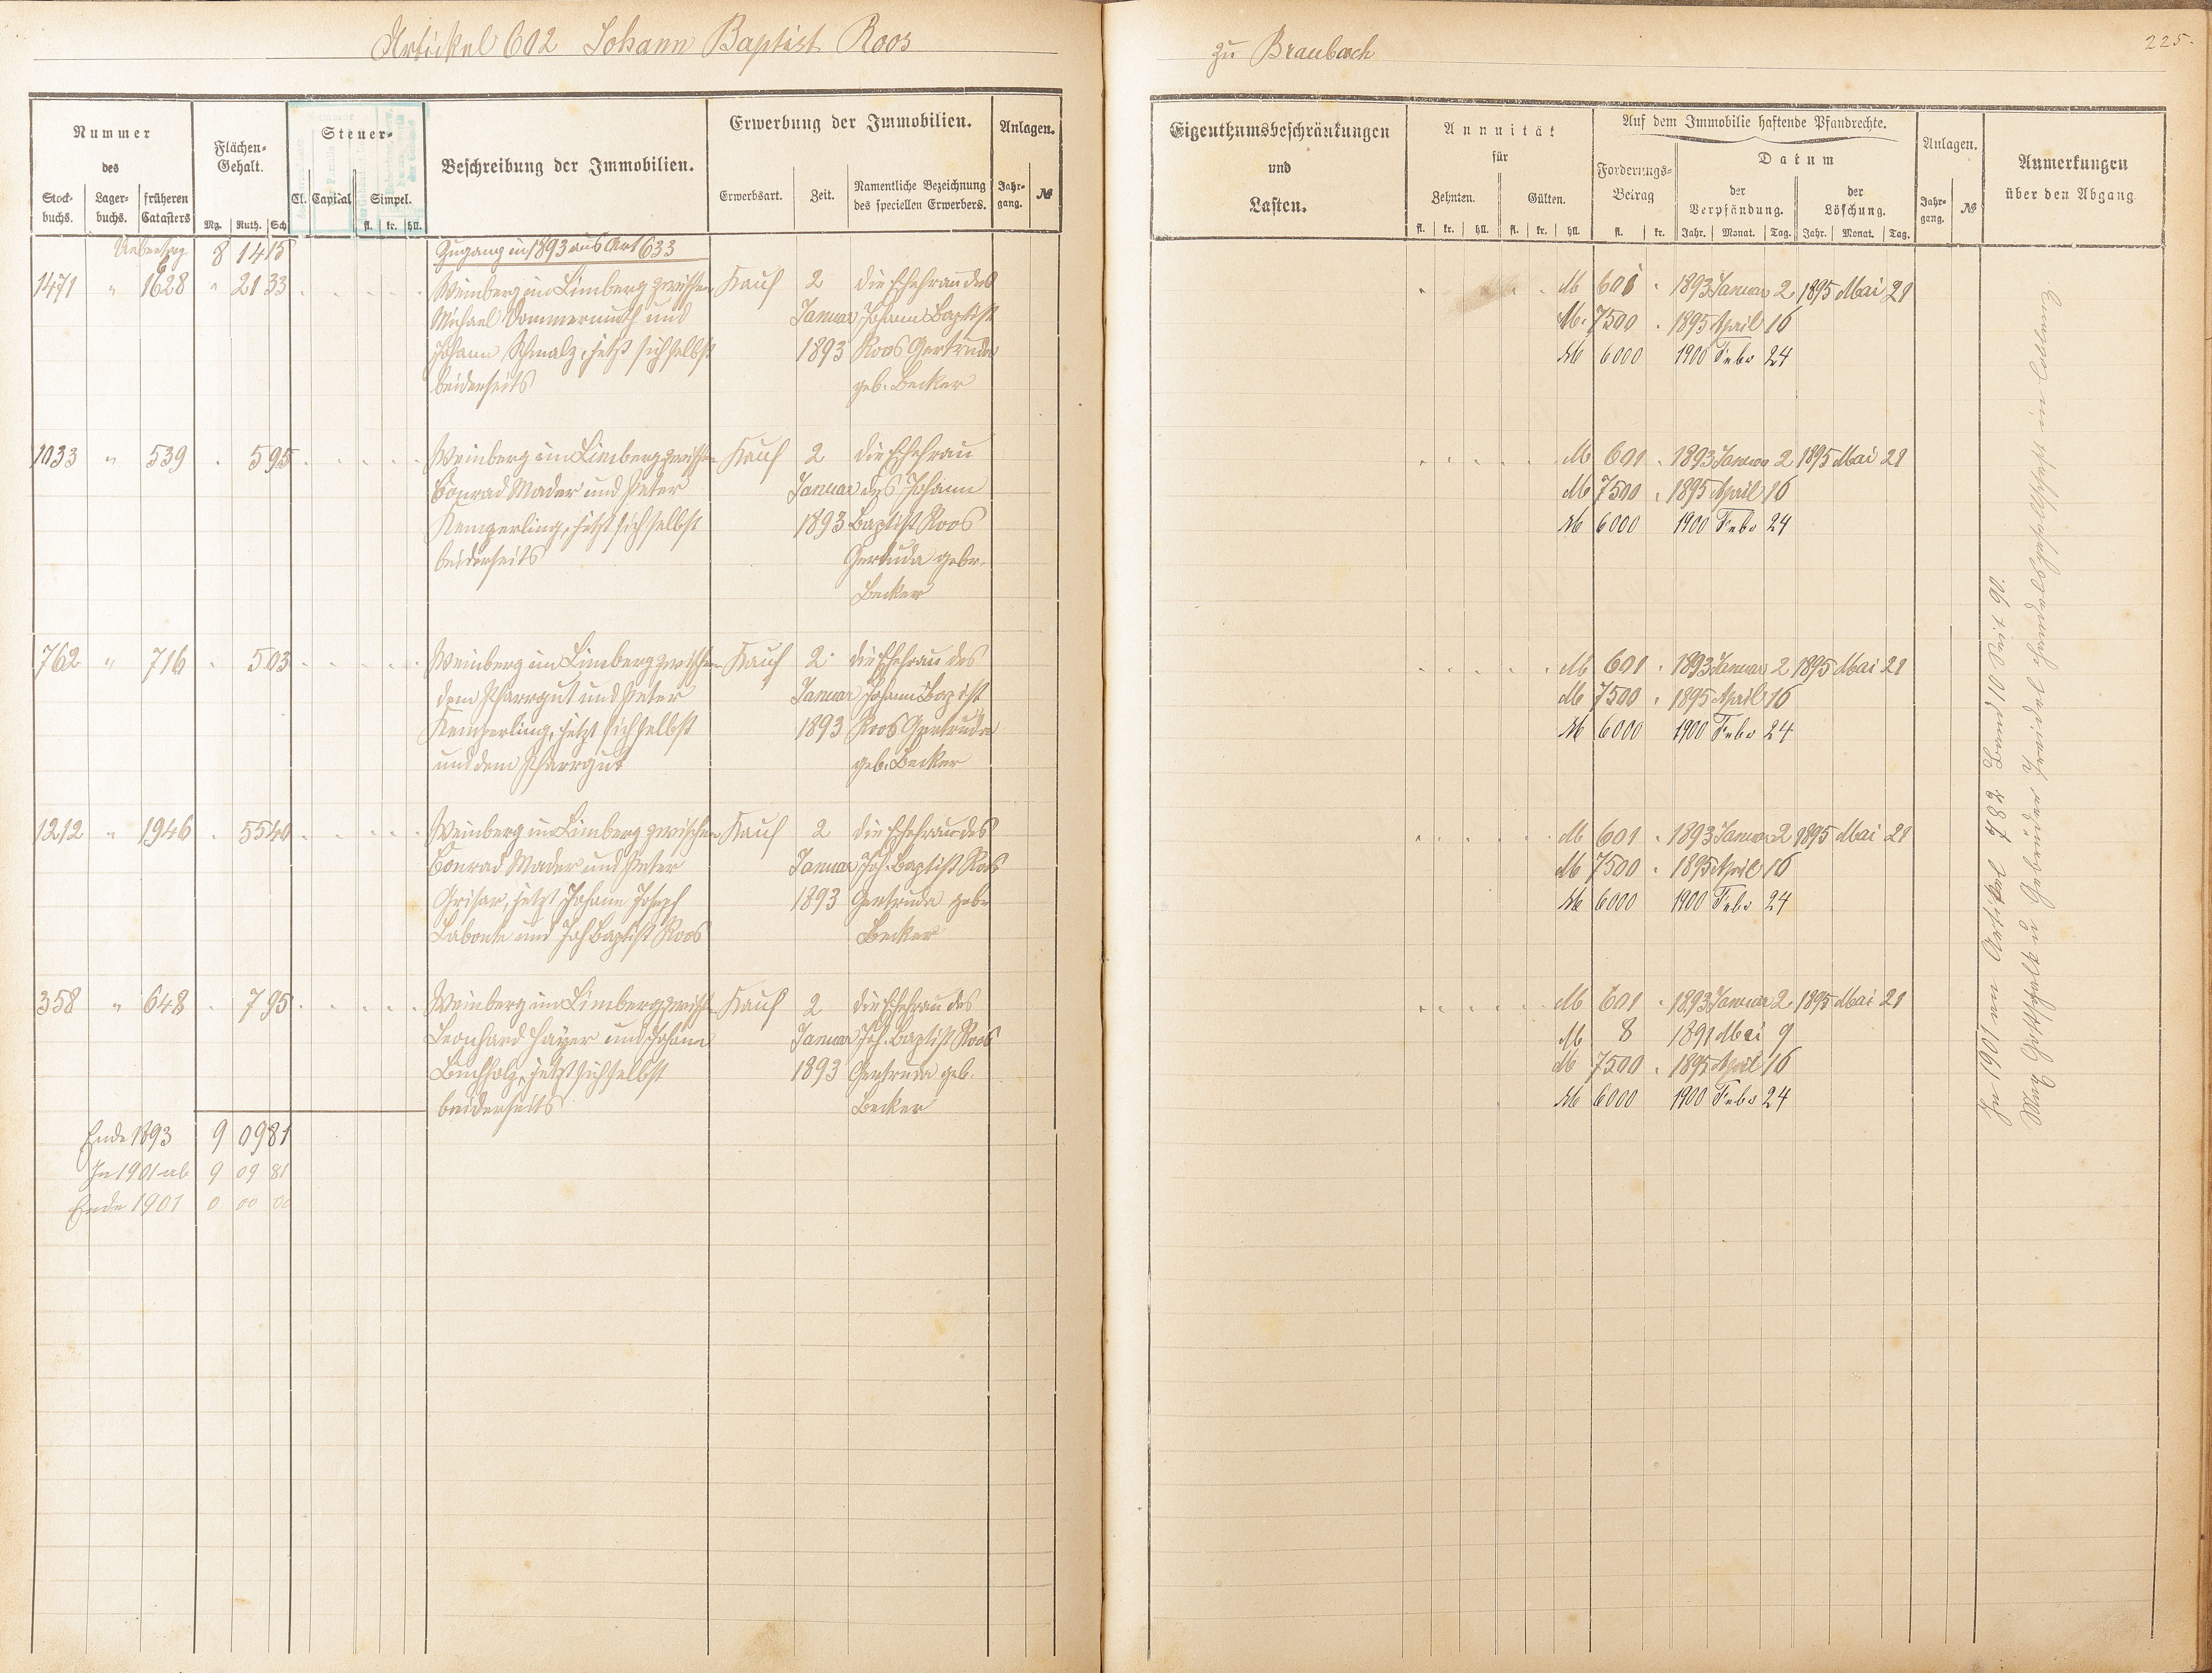 Artickel 602 Johann Baptist Roos
Nummer
des
Stock-
buchs.
Lager-
buchs.
früheren
Catasters
Flächen-
Gehalt.
Mg. Ruth. Sch
Steuer-
Cl. Capital
Simpel.
fl. kr. hll.
Beschreibung der Immobilien.
Erwerbung der Immobilien.
Erwerbsart. Zeit.
Namentliche Bezeichnung
des speciellen Erwerbers.
Anlagen.
Jahr-
gang.
№
Uebertrag 8 14 15 Zugang in 1893 aus Art 633
1471 " 1628 " 21 33 Weinberg im Limberg zwischen Kauf 2 die Ehefrau des
Michael Dommermuth und Januar Johann Baptist
Johann Schmalz, jetzt sich selbst 1893 Roos Gertruda
beiderseits geb. Becker
1033 " 539 . 5 95 Weinberg im Limberg zwischen Kauf 2 die Ehefrau
Conrad Mader und Peter Januar des Johann
Kemperling, jetzt sich selbst 1893 Baptist Roos
beiderseits Gertruda gebr.
Becker
762 " 716 . 5 03 Weinberg im Limberg zwischen Kauf 2 die Ehefrau des
dem Pfarrgut und Peter Januar Johann Baptist
Kemperling, jetzt sich selbst 1893 Roos Gertruda
und dem Pfarrgut geb. Becker
1212 " 1946 . 55 40 Weinberg im Limberg zwischen Kauf 2 die Ehefrau des
Conrad Mader und Peter Januar Joh. Baptist Roos
Grisar, jetzt Johann Joseph 1893 Gertruda gebr
Labonte und Joh Baptist Roos Becker
358 " 648 . 7 95 Weinberg im Limberg zwisch Kauf 2 die Ehefrau des
Leonhard Hayer und Johann Januar Joh. Baptist Roos
Buchholz, jetzt sich selbst 1893 Gertruda geb.
beiderseits Becker
Ende 1893 9 09 81
In 1901 ab 9 09 81
Ende 1901 0 00 00
zu Braubach
225.
Eigenthumsbeschränkungen
und
Lasten.
Annuität
für
Zehnten. Gülten.
fl. kr. hll. fl. kr. hll
Auf dem Immobilie haftende Pfandrechte.
Forderungs-
Betrag
fl. kr.
Datum
der
Verpfändung.
der
Löschung.
Jahr. Monat. Tag. Jahr. Monat. Tag.
Anlagen.
Jahr-
gang.
№
Anmerkungen
über den Abgang
M 601 . 1893 Januar 2 1895 Mai 21
M. 7500 . 1895 April 16
M 6000 1900 Febr 24
M 601 . 1893 Januar 2 1895 Mai 21
M 7500 . 1895 April 16
M 6000 1900 Febr 24
M 601 . 1893 Januar 2 1895 Mai 21
M 7500 . 1895 April 16
M 6000 1900 Febr 24
M 601 . 1893 Januar 2 1895 Mai 21
M 7500 . 1895 April 16
M 6000 1900 Febr 24
M 601 . 1893 Januar 2 1895 Mai 21
M 8 1891 Mai 9
M 7500 . 1895 April 16
M 6000 1900 Febr 24
In 1901 an Artikel 782 Band 10 Seit 90.
Gebrüder Handelsgesellschaft in